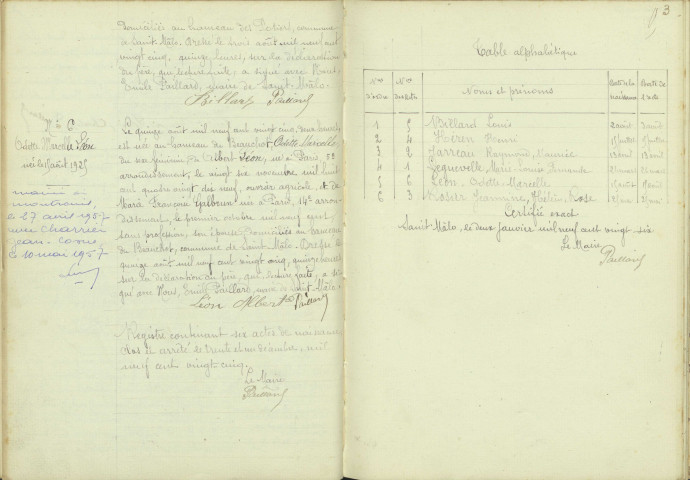 domiciliés au hameau des Potiers, commune
de Saint-Mâlo. Dressé le trois août mil neuf cent
vingt cinq, quinze heures, sur la déclaration
du père, qui, lecture faite, a signé avec Nous,
Emile Paillard, maire de Saint-Mâlo.
Billard Paillard
N° 6
Odette Marcelle Léon
née le 15 août 1925
mariée à
le 27 avril 1957
avec Charrier
Jean
le 10 mai 1957
Le quinze août mil neuf cent vingt cinq, heures
est née au hameau de Beauchot Odette Marcelle
du sexe féminin, de Albert Léon, né à Paris,
arrondissement, le vingt six novembre mil huit
cent quatre vingt dix neuf, ouvrier agricole, et de
Françoise née à Paris, 14e arron-
dissement, le premier octobre mil neuf cent
sans profession, son épouse, domiciliés au hameau
de Beauchot, commune de Saint-Mâlo. Dressé le
quinze août mil neuf cent vingt cinq, quinze heures
sur la déclaration du père, qui, lecture faite, a si-
gné avec Nous, Emile Paillard, maire de Saint-Mâlo.
Léon Albert Paillard
Registre contenant six actes de naissance
clos et arrêté le trente et un décembre mil
neuf cent vingt cinq.
Le Maire
Paillard
3
Table alphabétique
Nos d'ordre Nos des actes Noms et prénoms Date de la naissance Date de l'acte
1 5 Billard Louis 2 août 3 août
2 4 Henri juillet juillet
3 2 Jarreau Raymond, Maurice
4 1 Marie-Louise Fernande
5 6 Léon, Odette-Marcelle 15 août 15 août
6 3 Robert Jeannine, Hélène, Rose
Certifié exact
Saint-Mâlo, le deux janvier mil neuf cent vingt six
Le Maire
Paillard